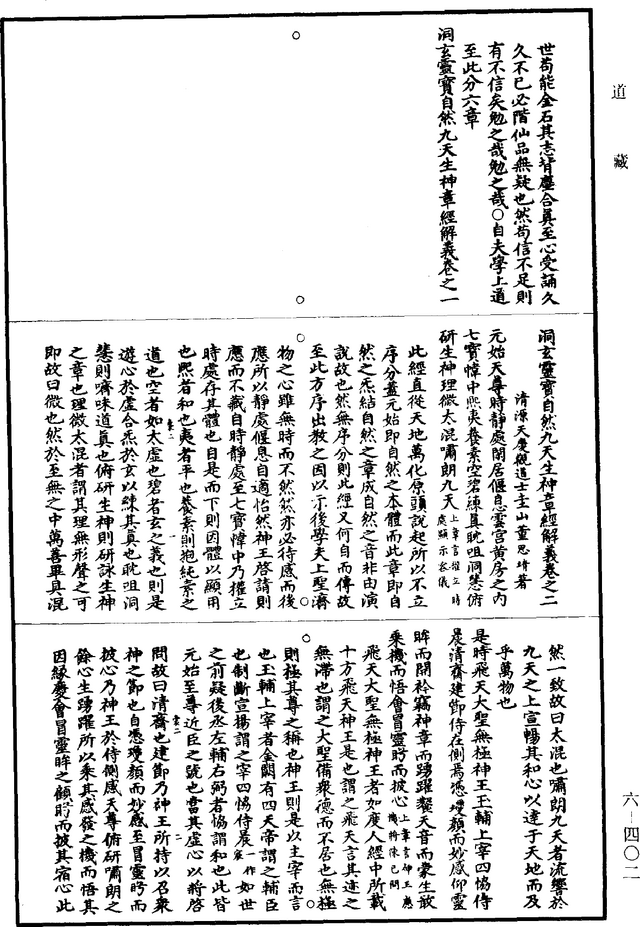 道藏
世苟能金石其志背塵合真至心受誦久
久不已必階仙品無疑也然苟信不足則
有不信矣勉之哉勉之哉○自夫學上道
至此分六章
洞玄靈寶自然九天生神章經解義卷之一
洞玄靈寶自然九天生神章經解義卷之二
清源天慶觀道士圭山董思靖著
元始天尊時靜處閑居偃息雲宮黃房之內
七寶幃中熙夷養素空碧練真耽咀洞慧俯
研生神理微太混嘯朗九天上章言權立時處顯示容儀
此經直從天地萬化原頭說起所以不立
序分蓋元始即自然之本體而此章即自
然之炁結自然之章成自然之音非由演
說故也然無序分則此經又何自而傳故
至此方序出教之因以示後學夫上聖濟
物之心雖無時而不然然亦必待感而後
應所以靜處偃息自適怡然神王啓請則
應而不藏自時靜處至七寶幃中乃權立
時處存其體也自是而下則因體以顯用
也熙者和也夷者平也養素則抱純素之
道也空者如太虛也碧者玄之義也則是
遊心於虛合炁於玄以練其真也耽咀洞
慧則嚌味道真也俯研生神則研詠生神
之章也理微太混者謂其理無形聲之可
即故曰微也然於至無之中萬善畢具混
然一致故曰太混也嘯朗九天者流響於
九天之上宣暢其和心以達于天地而及
乎萬物也
是時飛天大聖無極神王玉輔上宰四恊侍
晨清齋建節侍在側焉憑瓊顏而妙感仰靈
眸而開衿竊神章而踴躍䶨天音而蒙生敢
乘機而悟會冒靈眄而披心上章言神王應機將陳已問
飛天大聖無極神王者如度人經中所載
十方飛天神王是也謂之飛天言其迹之
無滯也謂之大聖備衆德而不居也無極
則極其尊之稱也神王則是以主宰而言
也玉輔上宰者金闕有四天帝謂之輔臣
也制斷宣揚謂之宰四恊侍晨一作宸如世
之前疑後丞左輔右弼者恊謂和也此皆
元始至尊近臣之號也當其虛心以將啓
問故曰清齋也建節乃神王所持以召衆
神之節也自憑瓊顏而妙感至冒靈眄而
披心乃神王於侍側感天尊俯研嘯朗之
餘心生踴躍所以乘其感發之機而悟其
因緣慶會冒靈眸之顧眄而披其宿心此
六－四〇二